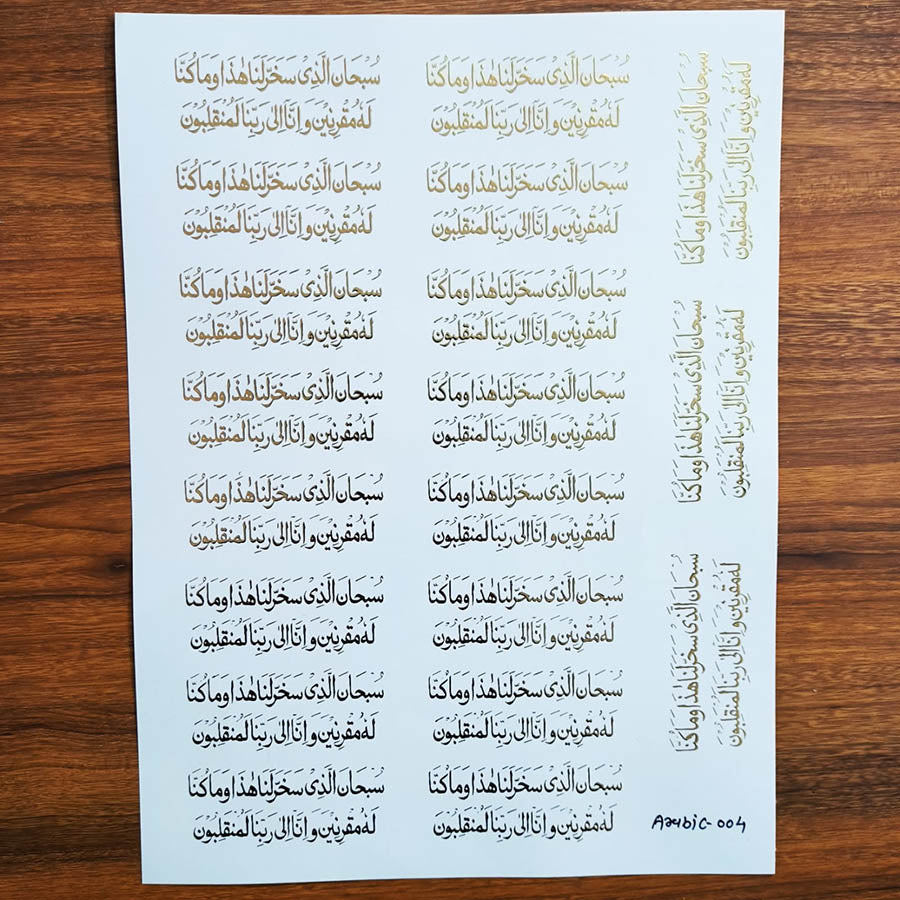 سُبْحَانَ الَّذِیْ سَخَّرَلَنَا هٰذَا وَمَا كُنَّا
لَهٗ مُقْرِنِیْنَ وَ اِنَّا اِلٰی رَبِّنَا لَمُنْقَلِبُوْنَ
سُبْحَانَ الَّذِیْ سَخَّرَلَنَا هٰذَا وَمَا كُنَّا
لَهٗ مُقْرِنِیْنَ وَ اِنَّا اِلٰی رَبِّنَا لَمُنْقَلِبُوْنَ
سُبْحَانَ الَّذِیْ سَخَّرَلَنَا هٰذَا وَمَا كُنَّا
لَهٗ مُقْرِنِیْنَ وَ اِنَّا اِلٰی رَبِّنَا لَمُنْقَلِبُوْنَ
سُبْحَانَ الَّذِیْ سَخَّرَلَنَا هٰذَا وَمَا كُنَّا
لَهٗ مُقْرِنِیْنَ وَ اِنَّا اِلٰی رَبِّنَا لَمُنْقَلِبُوْنَ
سُبْحَانَ الَّذِیْ سَخَّرَلَنَا هٰذَا وَمَا كُنَّا
لَهٗ مُقْرِنِیْنَ وَ اِنَّا اِلٰی رَبِّنَا لَمُنْقَلِبُوْنَ
سُبْحَانَ الَّذِیْ سَخَّرَلَنَا هٰذَا وَمَا كُنَّا
لَهٗ مُقْرِنِیْنَ وَ اِنَّا اِلٰی رَبِّنَا لَمُنْقَلِبُوْنَ
سُبْحَانَ الَّذِیْ سَخَّرَلَنَا هٰذَا وَمَا كُنَّا
لَهٗ مُقْرِنِیْنَ وَ اِنَّا اِلٰی رَبِّنَا لَمُنْقَلِبُوْنَ
سُبْحَانَ الَّذِیْ سَخَّرَلَنَا هٰذَا وَمَا كُنَّا
لَهٗ مُقْرِنِیْنَ وَ اِنَّا اِلٰی رَبِّنَا لَمُنْقَلِبُوْنَ
سُبْحَانَ الَّذِیْ سَخَّرَلَنَا هٰذَا وَمَا كُنَّا
لَهٗ مُقْرِنِیْنَ وَ اِنَّا اِلٰی رَبِّنَا لَمُنْقَلِبُوْنَ
سُبْحَانَ الَّذِیْ سَخَّرَلَنَا هٰذَا وَمَا كُنَّا
لَهٗ مُقْرِنِیْنَ وَ اِنَّا اِلٰی رَبِّنَا لَمُنْقَلِبُوْنَ
سُبْحَانَ الَّذِیْ سَخَّرَلَنَا هٰذَا وَمَا كُنَّا
لَهٗ مُقْرِنِیْنَ وَ اِنَّا اِلٰی رَبِّنَا لَمُنْقَلِبُوْنَ
سُبْحَانَ الَّذِیْ سَخَّرَلَنَا هٰذَا وَمَا كُنَّا
لَهٗ مُقْرِنِیْنَ وَ اِنَّا اِلٰی رَبِّنَا لَمُنْقَلِبُوْنَ
سُبْحَانَ الَّذِیْ سَخَّرَلَنَا هٰذَا وَمَا كُنَّا
لَهٗ مُقْرِنِیْنَ وَ اِنَّا اِلٰی رَبِّنَا لَمُنْقَلِبُوْنَ
سُبْحَانَ الَّذِیْ سَخَّرَلَنَا هٰذَا وَمَا كُنَّا
لَهٗ مُقْرِنِیْنَ وَ اِنَّا اِلٰی رَبِّنَا لَمُنْقَلِبُوْنَ
سُبْحَانَ الَّذِیْ سَخَّرَلَنَا هٰذَا وَمَا كُنَّا
لَهٗ مُقْرِنِیْنَ وَ اِنَّا اِلٰی رَبِّنَا لَمُنْقَلِبُوْنَ
سُبْحَانَ الَّذِیْ سَخَّرَلَنَا هٰذَا وَمَا كُنَّا
لَهٗ مُقْرِنِیْنَ وَ اِنَّا اِلٰی رَبِّنَا لَمُنْقَلِبُوْنَ
سُبْحَانَ الَّذِیْ سَخَّرَلَنَا هٰذَا وَمَا كُنَّا
لَهٗ مُقْرِنِیْنَ وَ اِنَّا اِلٰی رَبِّنَا لَمُنْقَلِبُوْنَ
سُبْحَانَ الَّذِیْ سَخَّرَلَنَا هٰذَا وَمَا كُنَّا
لَهٗ مُقْرِنِیْنَ وَ اِنَّا اِلٰی رَبِّنَا لَمُنْقَلِبُوْنَ
سُبْحَانَ الَّذِیْ سَخَّرَلَنَا هٰذَا وَمَا كُنَّا
لَهٗ مُقْرِنِیْنَ وَ اِنَّا اِلٰی رَبِّنَا لَمُنْقَلِبُوْنَ
Arabic-004